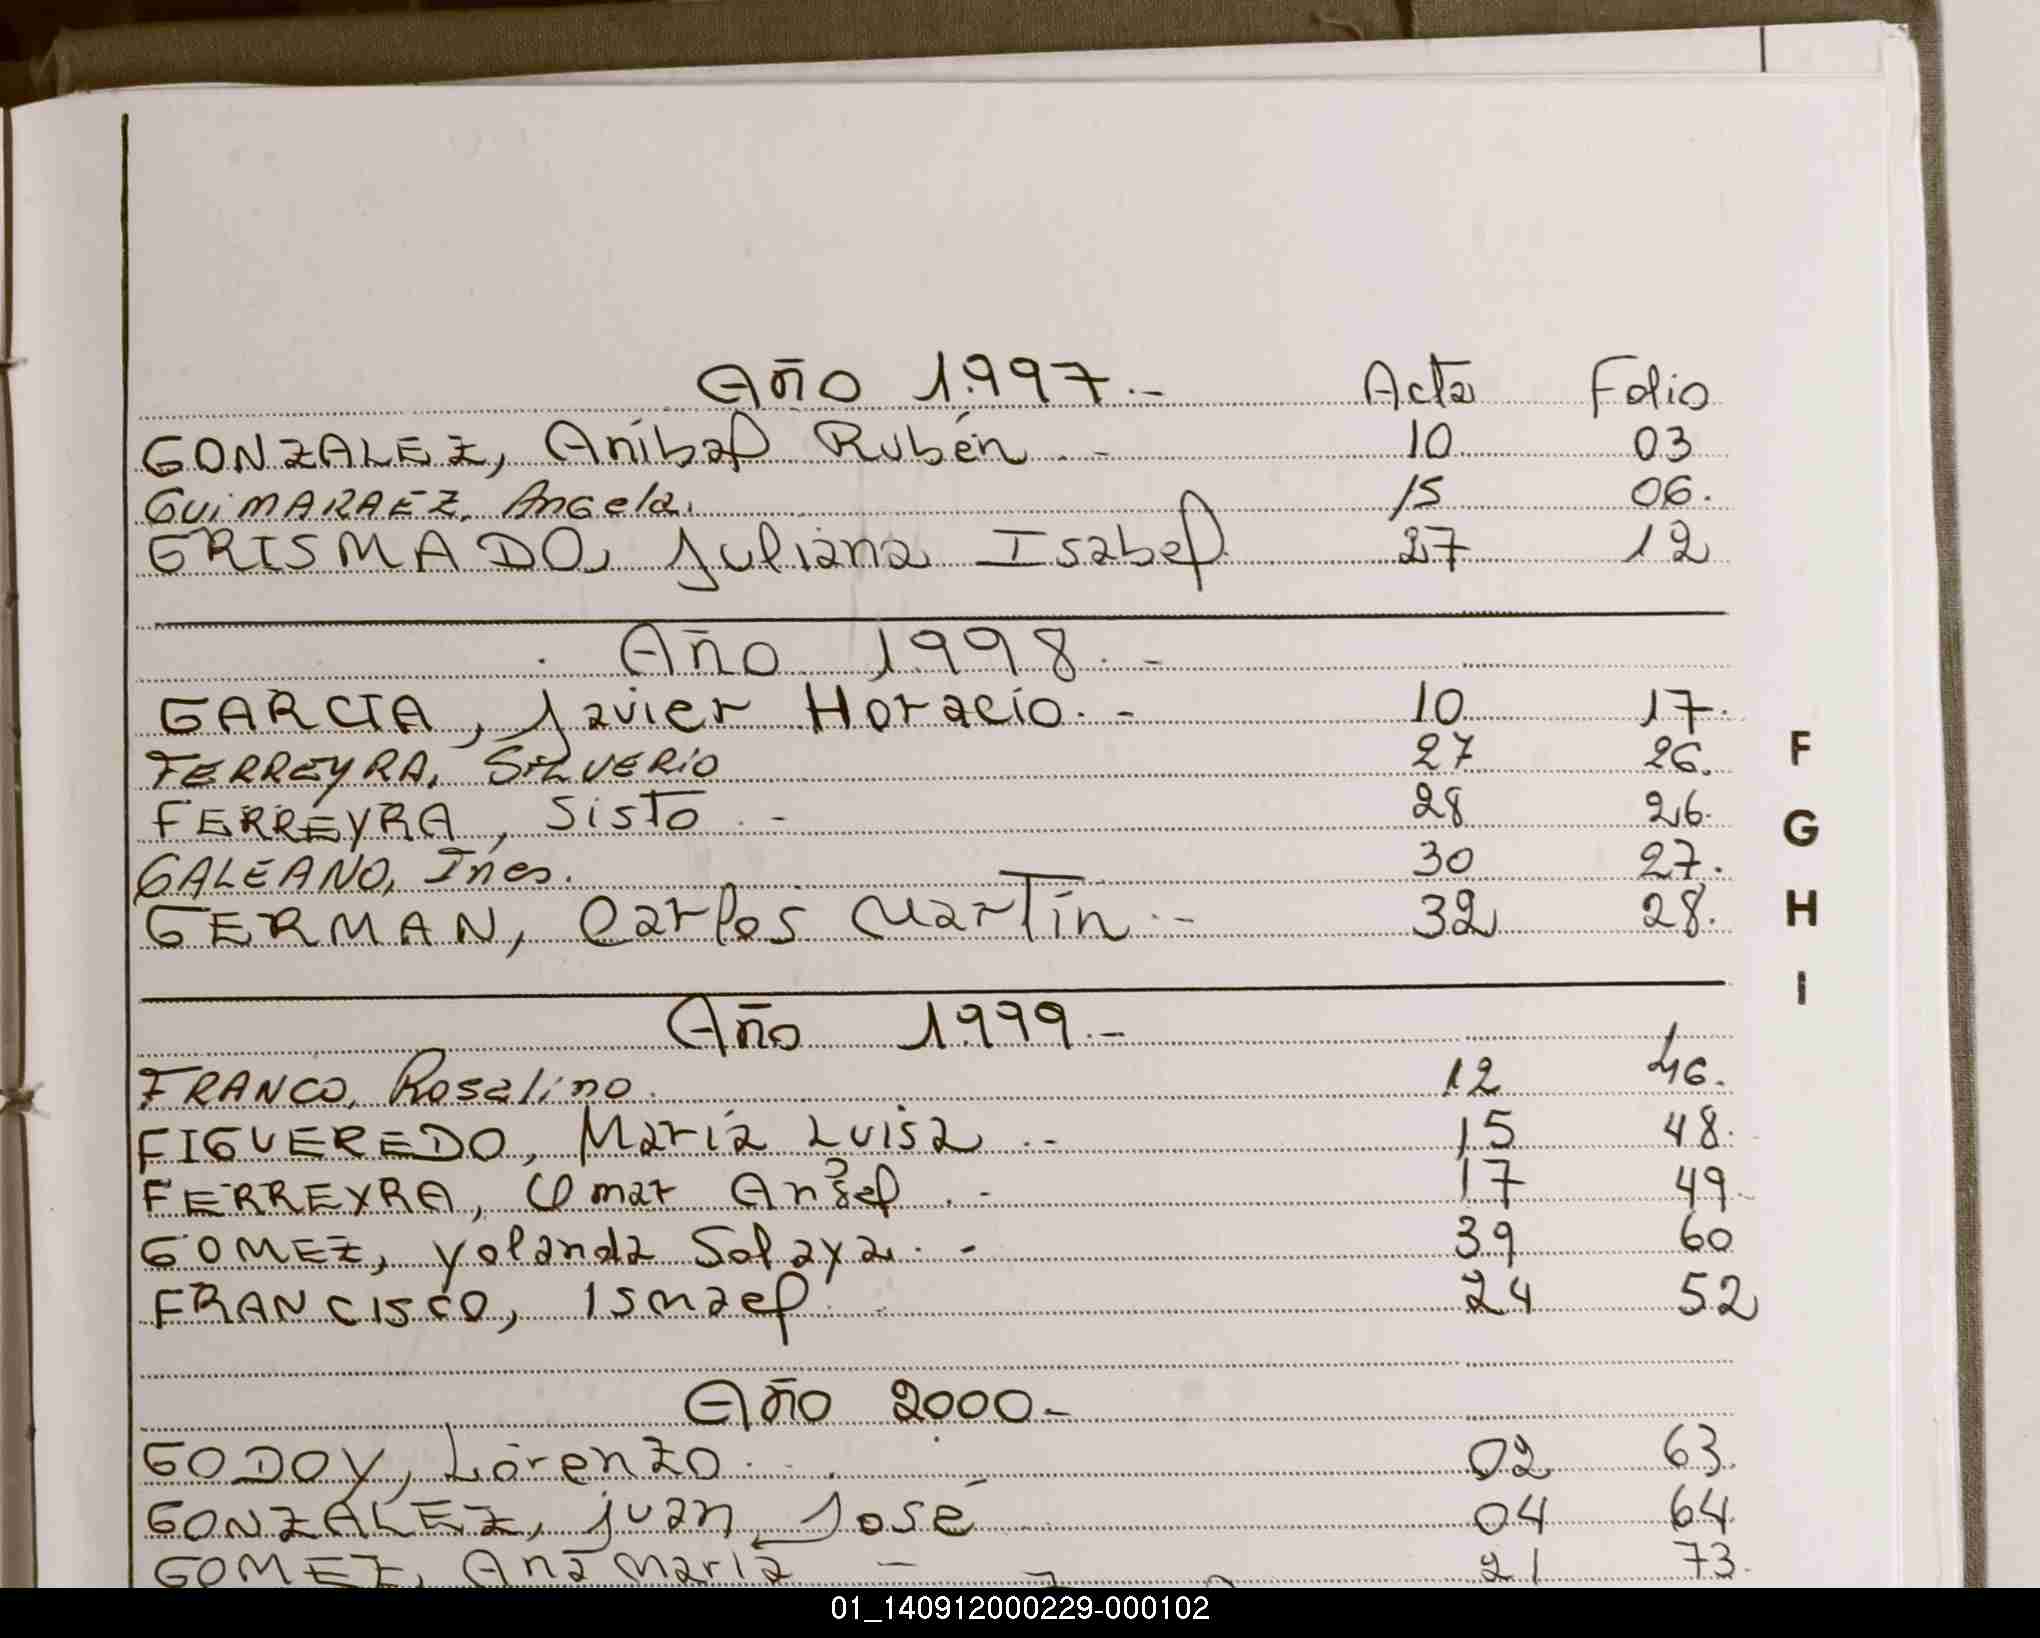 Año 1.997.- Acta Folio
GONZALEZ, Aníbal Rubén.- 10 03
GUiMARAEZ, Angela. 15 06.
GRISMADO, Juliana Isabel 27 12
Año 1.998.-
GARCIA, Javier Horacio.- 10 17.
FERREYRA, SILVERiO 27 26.
FERREYRA, Sisto.- 28 26.
GALEANO, Ines. 30 27.
GERMAN, Carlos Martín.- 32 28.
Año 1.999.-
FRANCO, Rosalino. 12 46.
FIGUEREDO, María Luisa.- 15 48.
FERREYRA, Omar Angel.- 17 49.
GOMEZ, Yolanda Solaya.- 39 60
FRANCISCO, Ismael 24 52
F
G
H
I
Año 2000.-
GODOY, Lorenzo.. 02 63.
GONZALEZ, Juan José 04 64.
GOMEZ, Ana María - 21 73.
01_140912000229-000102